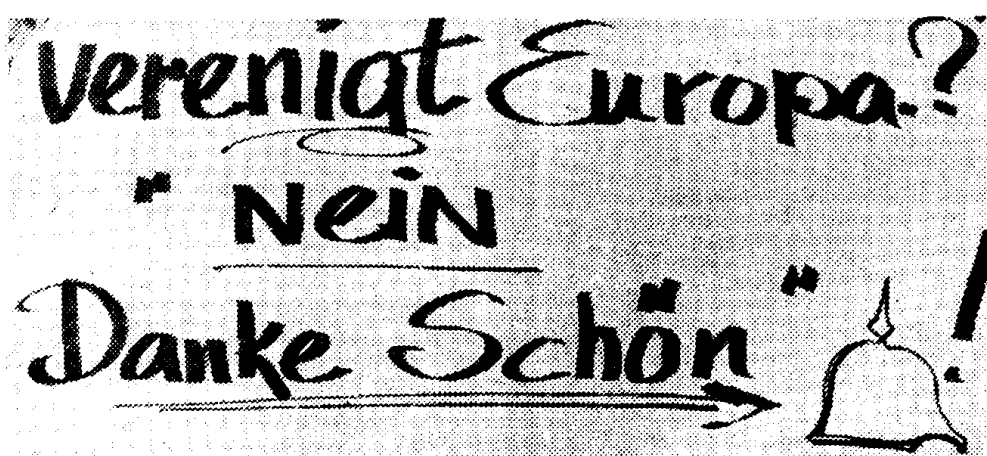 Verenigt Europa?
" Nein
Danke Schön " !